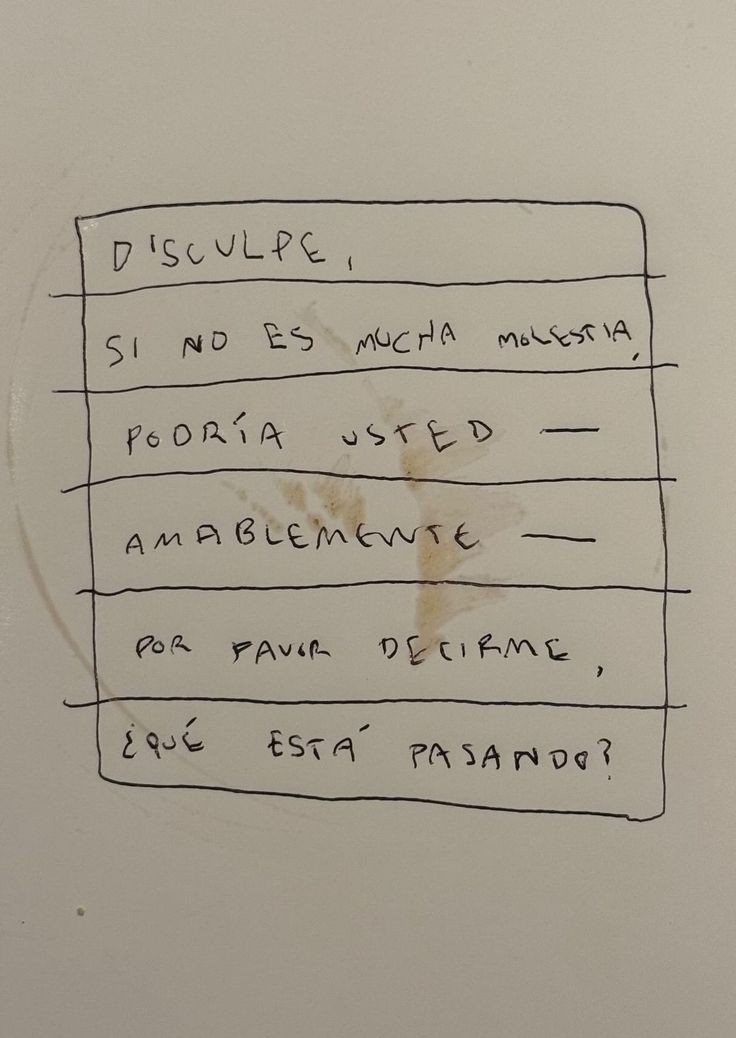 DISCULPE,
SI NO ES MUCHA MOLESTIA,
PODRÍA USTED —
AMABLEMENTE —
POR FAVOR DECIRME,
¿QUÉ ESTÁ PASANDO?